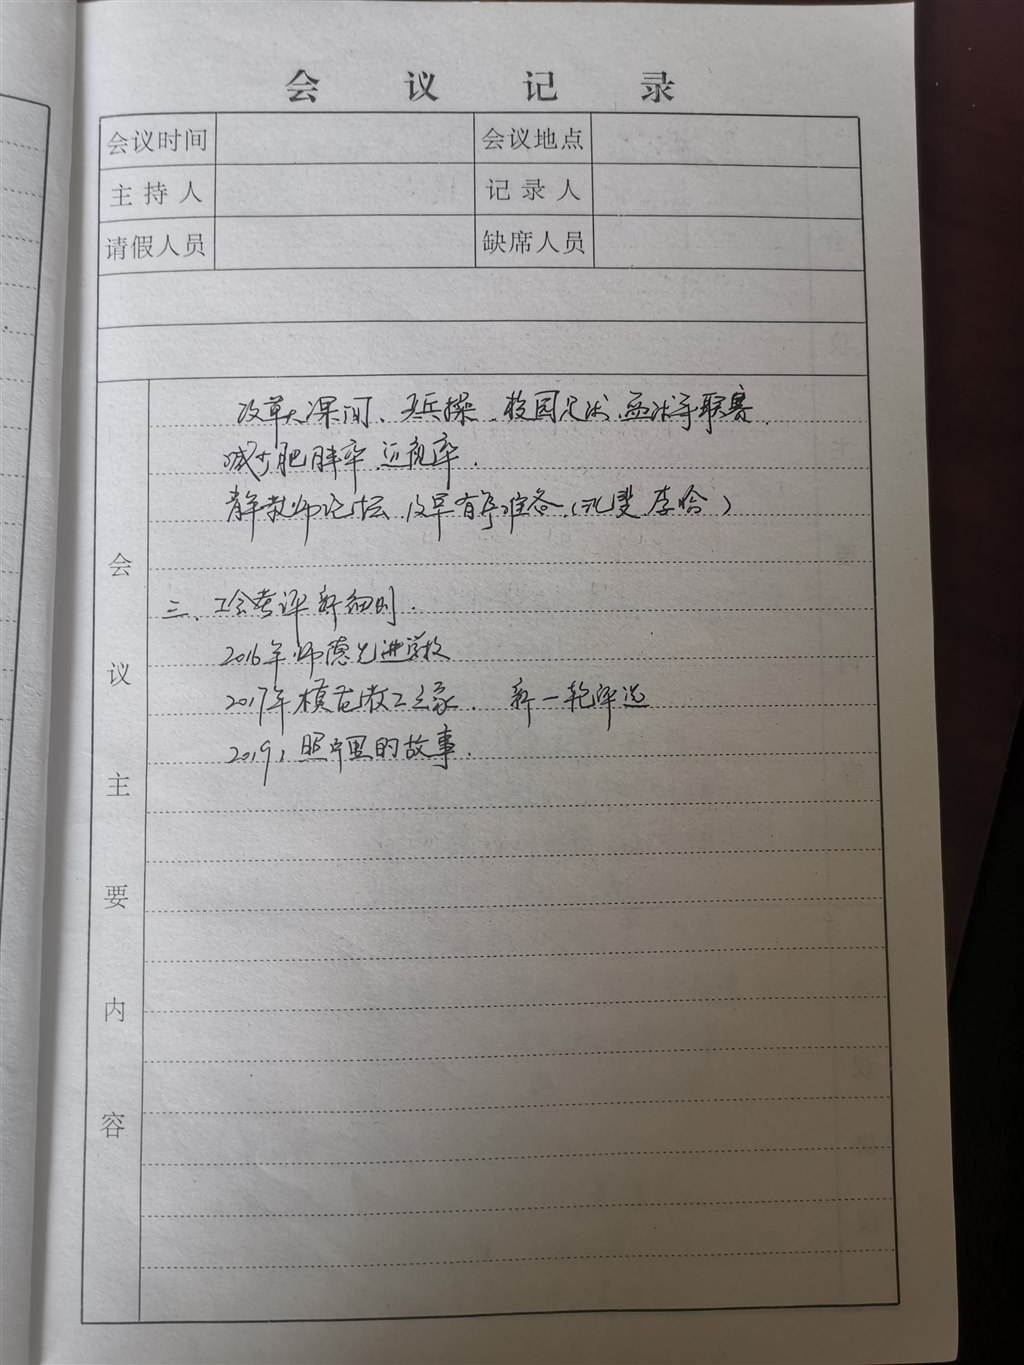 会议记录
会议时间 会议地点
主持人 记录人
请假人员 缺席人员
会议主要内容
改革大课间、兵操、校园足球、篮球等联赛.
减少肥胖率 近视率.
青年教师论坛 及早有序准备(李哈)
三、工会考评新细则.
2016年师德先进学校
2017年模范教工之家. 新一轮评选
2019, 照片里的故事.